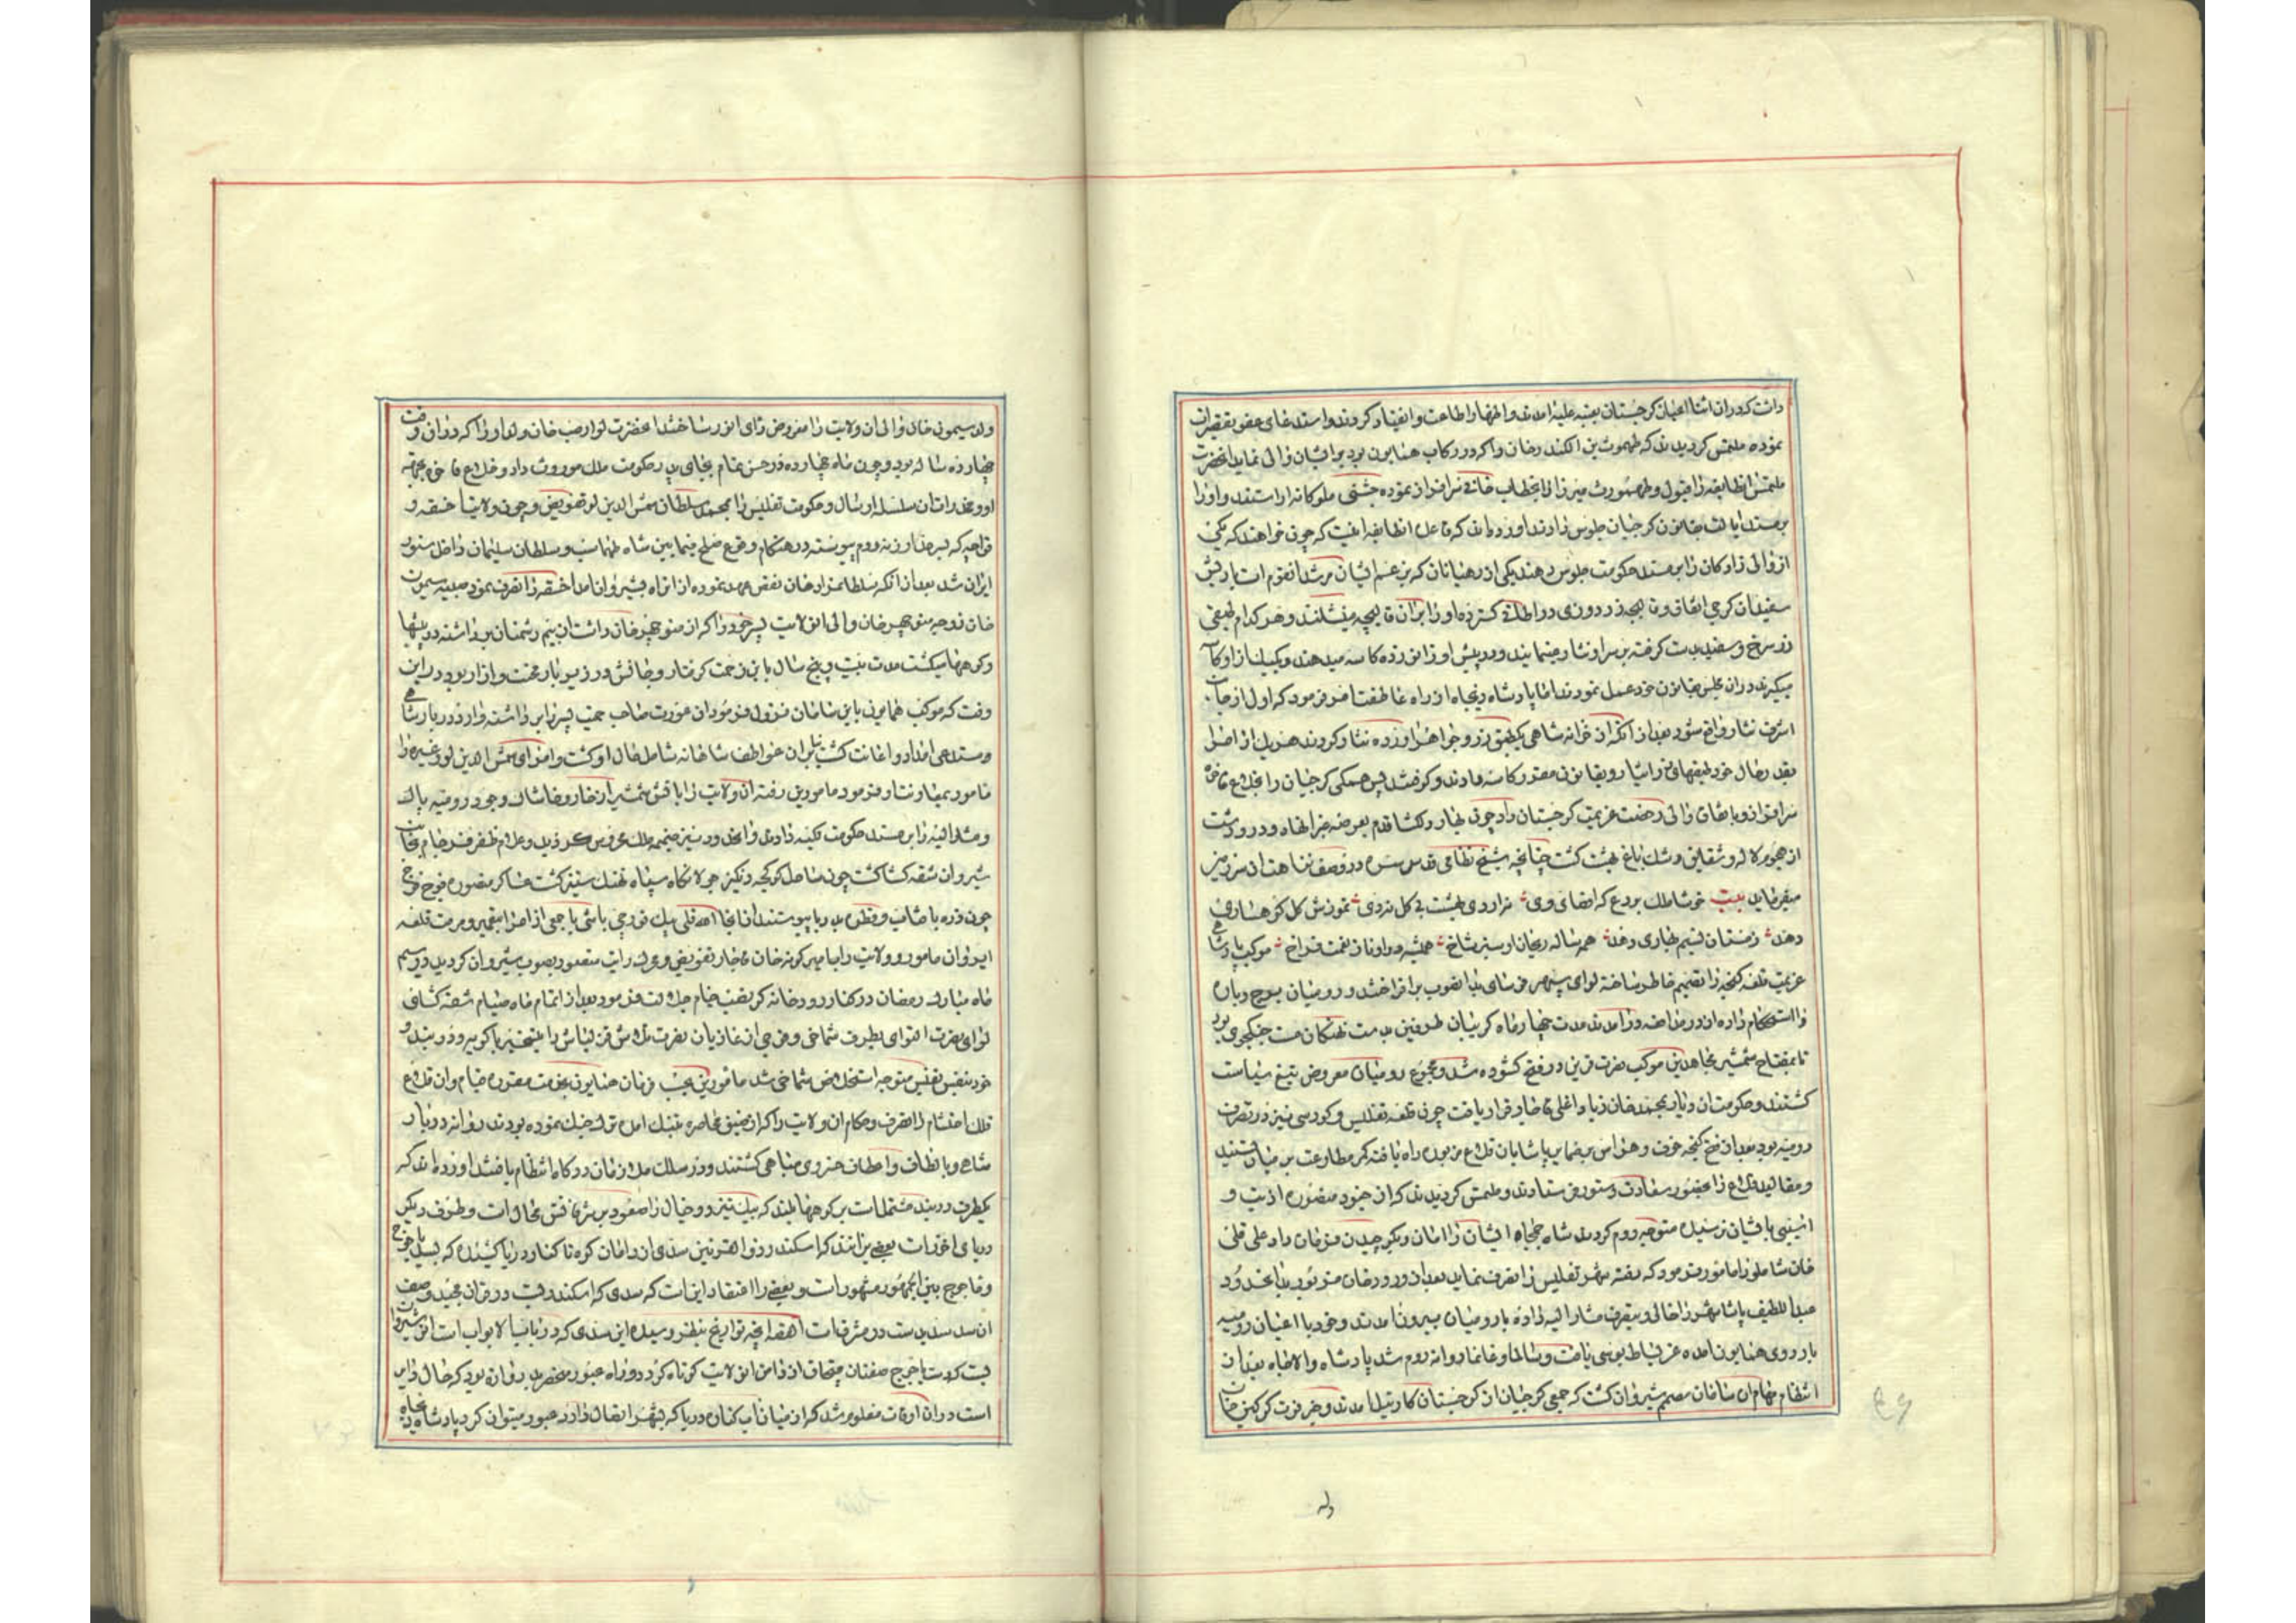 داشت که در ان اثنا اعیان کرجستان بعتبه علیه امدند و اظهار اطاعت و انقیاد کردند و استدعای عفو تقصیرات
نموده ملتمس کردیدند که طهمورث بن الکسندر خان را که در رکاب همایون بود بر ایشان والی نماید انحضرت
ملتمس انطایفه را قبول و طهمورث میرزا را بخطاب خانی سرافراز نموده جشنی ملوکانه اراستند و او را
بر مسند ایالت بقانون کرجیان جلوس دادند اورده اند که قاعده انطایفه انیست که چون خواهند که یکی
از والی زادکان را بر مسند حکومت جلوس دهند یکی از رهبانان که بزعم ایشان مرشد انقوم است با ریش
سفیدان کرجی اتفاق و قالیچه زردوزی در اطاق کسترده او را بران قالیچه مینشانند و هر کدام طبقی
زر سرخ و سفید بدست کرفته بر سر او نثار مینمایند و در پیش او زانو زده کاسه میدهند و یکیک از او کاسه
میکیرند در ان مجلس بقانون خود عمل نمودند اما پادشاه دینجاه از راه عاطفت امر فرمود که اول از جانب
اشرف نثار واقع شود بعد از انکه از خزانه شاهی یکطبق زر و جواهر اورده نثار کردند هر یک از امرا
بقدر حال خود طبقهای زر ایثار و بقانون مقرر کاسه دادند و کرفتند پس همکی کرجیان را بخلاع فاخره
سرافراز و باتفاق والی رخصت عزیمت کرجستان داد چون بهار دلکشا قدم بعرصه جز انماه و در و دشت
از هجوم لاله و شقایق رشک باغ بهشت کشت چنانچه شیخ نظامی قدس سره در وصف نزاهت ان سرزمین
میفرماید بیت خوشا ملک بردع که اقصای وی نه اردی بهشت بی کل نه دی تموزش کل کوهساری
دهد زمستان نسیم بهاری دهد همه ساله ریحان او سبز شاخ همیشه در او ناز نعمت فراخ موکب پادشاهی
عزیمت قلعه کنجه را تصمیم خاطر ساخته لوای سپهر فرسای بدانصوب برافراختند و رومیان برج و باره
را استحکام داده از در مدافعه درامدند مدت چهار ماه کریبان طرفین بدست نهنکان مست جنکجوی بود
تا بمفتاح شمشیر مجاهدین موکب نصرت قرین در فتح کشوده شد و مجموع رومیان معروض تیغ سیاست
کشتند و حکومت ان دیار بمحمد خان زیاد اغلی قاجار قرار یافت چون قلعه تفلیس و کوردسی نیز در تصرف
رومیه بود بعد از فتح کنجه خوف و هراس بضمایر پاشایان قلاع مزبور راه یافته کمر مطاوعت بر میان بستند
و مقالید قلاع را بحضور سعادت دستور فرستادند و ملتمس کردیدند که از جنود منصوره اذیت و
اسیبی باشیان نرسیده متوجه روم کردند شاه جمجاه ایشان را امان و بکوچیدن فرمان داد علی قلی
خان شاملو را مامور فرمود که رفته شهر تفلیس را تصرف نماید بعد از ورود خان مزبور بدانحدود
عبد اللطیف پاشا شهر را خالی و بتصرف مشار الیه داده با رومیان بیرون امدند و خود با اعیان رومیه
باردوی همایون امده عز بساط بوسی یافت و سالما و غانما روانه روم شد پادشاه والاجاه بعد از
انتظام مهام ان سامان مصمم شیروان کشت که جمعی کرجیان از کرجستان کارتیل امدند و خبر فوت کرکین خان
ولد
ولد سیمون خان والی ان ولایت را معروض رای انور ساختند انحضرت لوارصب خان ولد او را که در ان وقت
چهارده ساله بود و چون ماه چهارده در حسن تمام بجای پدر حکومت ملک موروث داد و خلاع فاخره بجهة
او و مخدرات ان سلسله ارسال و حکومت تفلیس را بمحمد سلطان شمس الدین لو تفویض و چون ولایت اخسقه و
نواحی که بسرحد ارزنه روم پیوسته در هنکام وقوع صلح فیمابین شاه طهماسب و سلطان سلیمان داخل سنور
ایران شد بعد از انکه سلطان مراد خان نقض عهد نموده از انراه بشیروان امد اخسقه را تصرف نمود صبیه سیمون
خان زوجه منوچهر خان والی انولایت پسر خود را که از منوچهر خان داشت از بیم دشمنان برداشته در بیشها
و کوهها میکشت مدت بیست و پنج سال باین زحمت کرفتار و جانش در زیر بار محنت و ازار بود در این
وقت که موکب همایون باین سامان نزول فرمود ان عورت صاحب حمیت پسر را برداشته وارد دربار شاهی
و مستدعی امداد و اعانت کشت بنابران عواطف شاهانه شامل حال او کشت و امرای شمس الدین لو و غیره را
مامور بمعاونت او فرمود مامورین رفته ان ولایت را باتش شمشیر از خار و خاشاک وجود رومیه پاک
و مشار الیه را بر مسند حکومت تکیه دادند و انحدود نیز ضمیمه ملک محروس کردید و علام ظفر فرجام بجانب
شیروان شقه کشا کشت چون ساحل کوکجه دنکیز جولانکاه سپاه نهنک ستیز کشت عساکر منصوره فوج فوج
چون ذره بافتاب و قطره بدریا پیوستند از انجا الله قلی بیک قورچی باشی با جمعی از امرا بتعمیر و مرمت قلعه
ایروان مامور و ولایت را بامیر کونه خان قاجار تفویض و تحرک رایت منصور بصوب شیروان کردید در سیم
ماه مبارک رمضان در کنار رودخانه کر نصب خیام جلالت فرمود بعد از اتمام ماه صیام شقه کشای
لوای نصرت التوای بطرف شماخی و فوجی از غازیان نصرت تلاش قزلباش را بتسخیر باکویه و دربند و
خود بنفس نفیس متوجه استخلاص شماخی شد مامورین بموجب فرمان همایون بخدمت مقرره قیام و ان قلاع
فلک احتشام را تصرف و حکام ان ولایت را که از ضیق محاصره بتنک امده ترک جنک نموده بودند روانه دربار
شاهی و بالطاف و احسان خسروی مباهی کشتند و در سلک ملازمان درکاه انتظام یافتند اورده اند که
یکطرف دربند مشتملست بر کوهها بلند که پیک تیز رو خیال را صعود بر شرفاتش محالست و طرف دیکر
دریای اخزرست بعضی برانند که اسکندر ذوالقرنین سدی از دامان کوه تا کنار دریا کشیده که بسد یاجوج
و ماجوج بین الجمهور مشهور است و بعضی را اعتقاد اینست که سدی که اسکندر بست و در قران مجید وصف
ان سد شدست در مشرقست القصه انچه تواریخ بنظر رسیده این سدی که در باب الابوابست انوشیروان
بست که دست یاجوج صفتان قبچاق از دامن انولایت کوتاه کردد و راه عبور منحصر بدروازه بود که حال دایر
است در ان اوقات معلوم شد که از میان اب کناره دریا که بشهر اتصال دارد عبور میتوان کرد پادشاه دینجاه